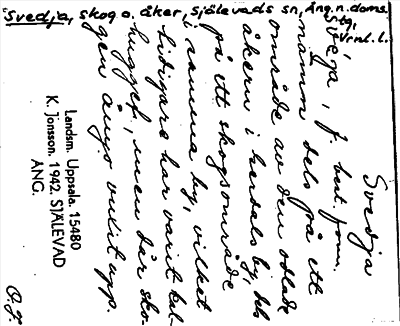 Svedja, skog o. åker, Själevads sn, Ång.n.doms.
Vrnl.l.
Svedja
f. best. form.
namn dels på ett
område av den odlade
åkern i hundals by, dels
på ett skogsområde
i samma by, vilket
tidigare har varit kal-
hugget, men där sko-
gen ånyo vuxit upp.
Landsm. Uppsala. 15480
K. Jonsson. 1942. SJÄLEVAD
ÅNG.